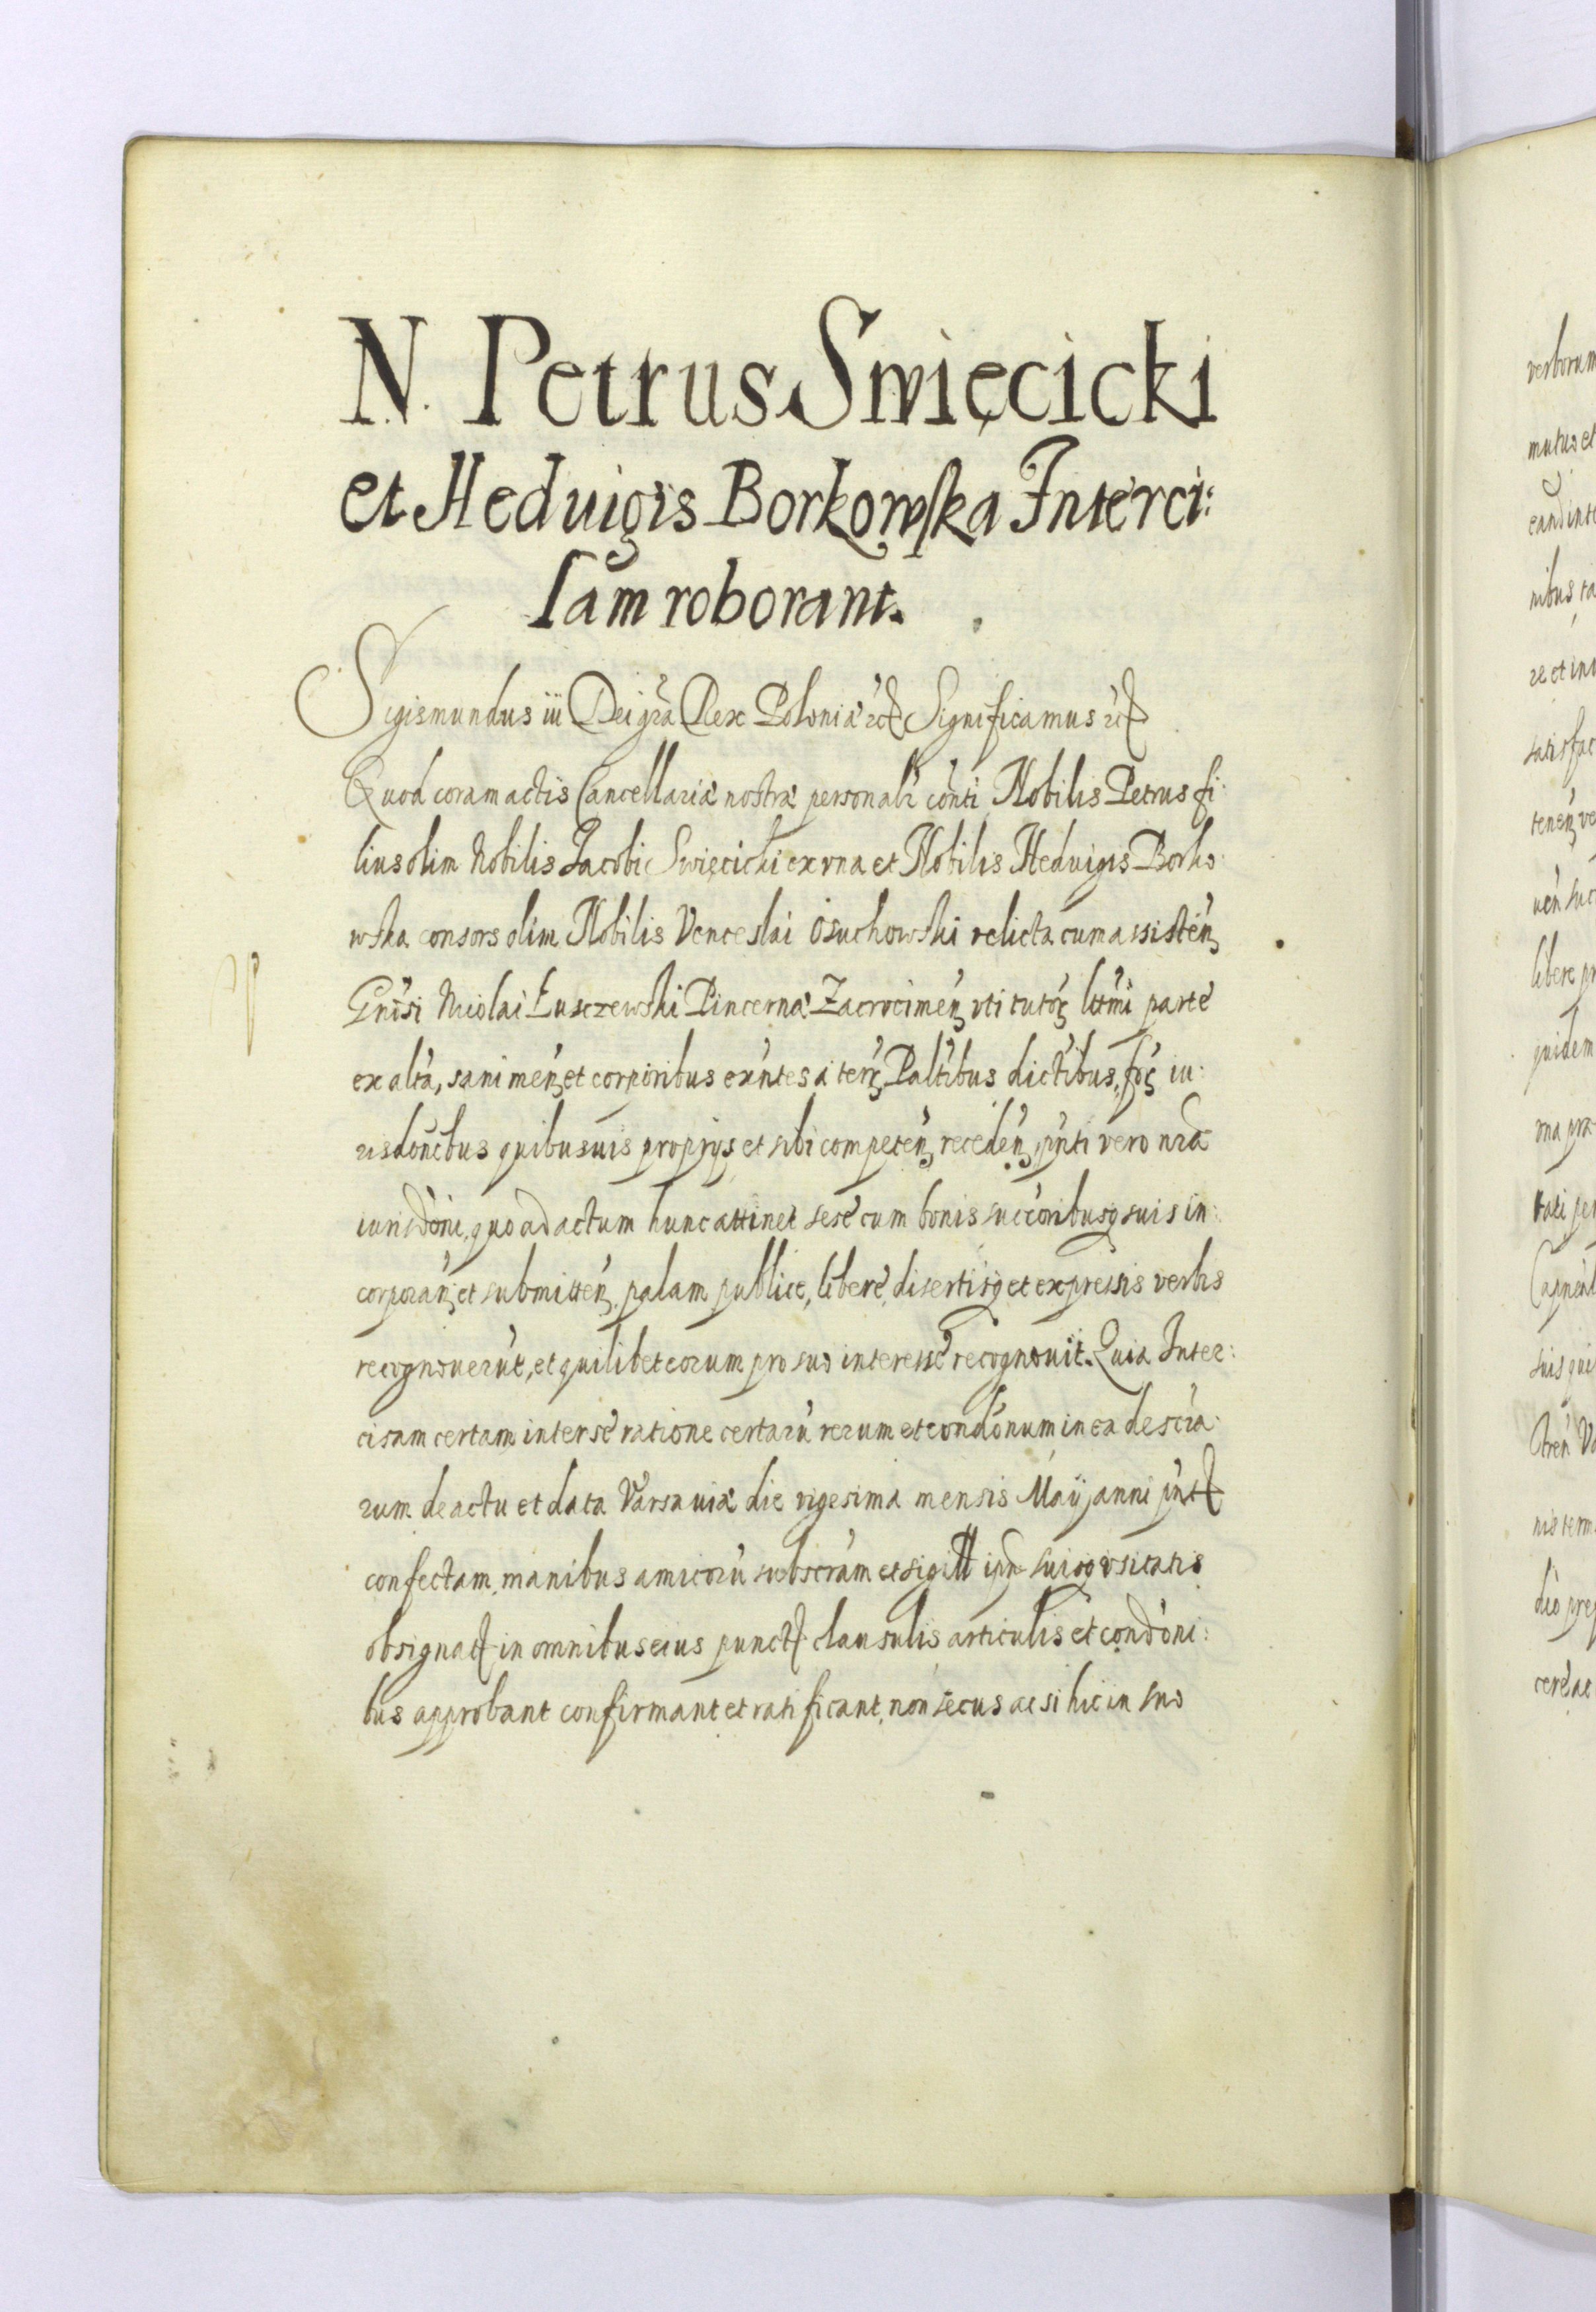 N. Petrus Swięcicki
et Heduigis Borkowska Interci:
sam roborant.
Sigismundus iii Dei gra Rex Poloniæ etc Significamus etc
Quod coram actis Cancellariæ nostræ personalr conti Nobilis Petrus fi:
lius olim Nobilis Jacobi Swięcicki ex vna et Nobilis Heduigis Borko:
wska consors olim Nobilis Venceslai Osuchowski relicta cum assisten
Gnosi Nicolai Łusczewski Pincernæ Zacrocimen vti tutor lttmi parte
ex alta, sani men et corporibus exntes a terr Paltibus dictibus, for iu:
risdonebus quibusuis proprijs et sibi competen receden, pnti vero nra
iurisdoni, quo ad actum hunc attinet sese cum bonis succoribusq suis in:
corporan et submitten, palam publice, libere, disertisq et expressis verbis
recognouerut, et quilibet eorum pro suo interesse recognouit. Quia Inter:
cisam certam inter se ratione certaru rerum et condonum in ea descra:
rum de actu et data Varsauiæ die vigesima mensis Maij anni pnt
confectam, manibus amicoru subscram et sigill ipm suisq vsitatis
obsignat in omnibus eius punct clausulis articulis et condoni:
bus approbant confirmant et ratificant, non secus ac si hic in suo
verborum
mutus et
eand inte
nibus ta
re et in
satisfac
tenen ve
uen suc
libere pr
quidem
ma præ
suis qui
nis term
dio pre
cere ac